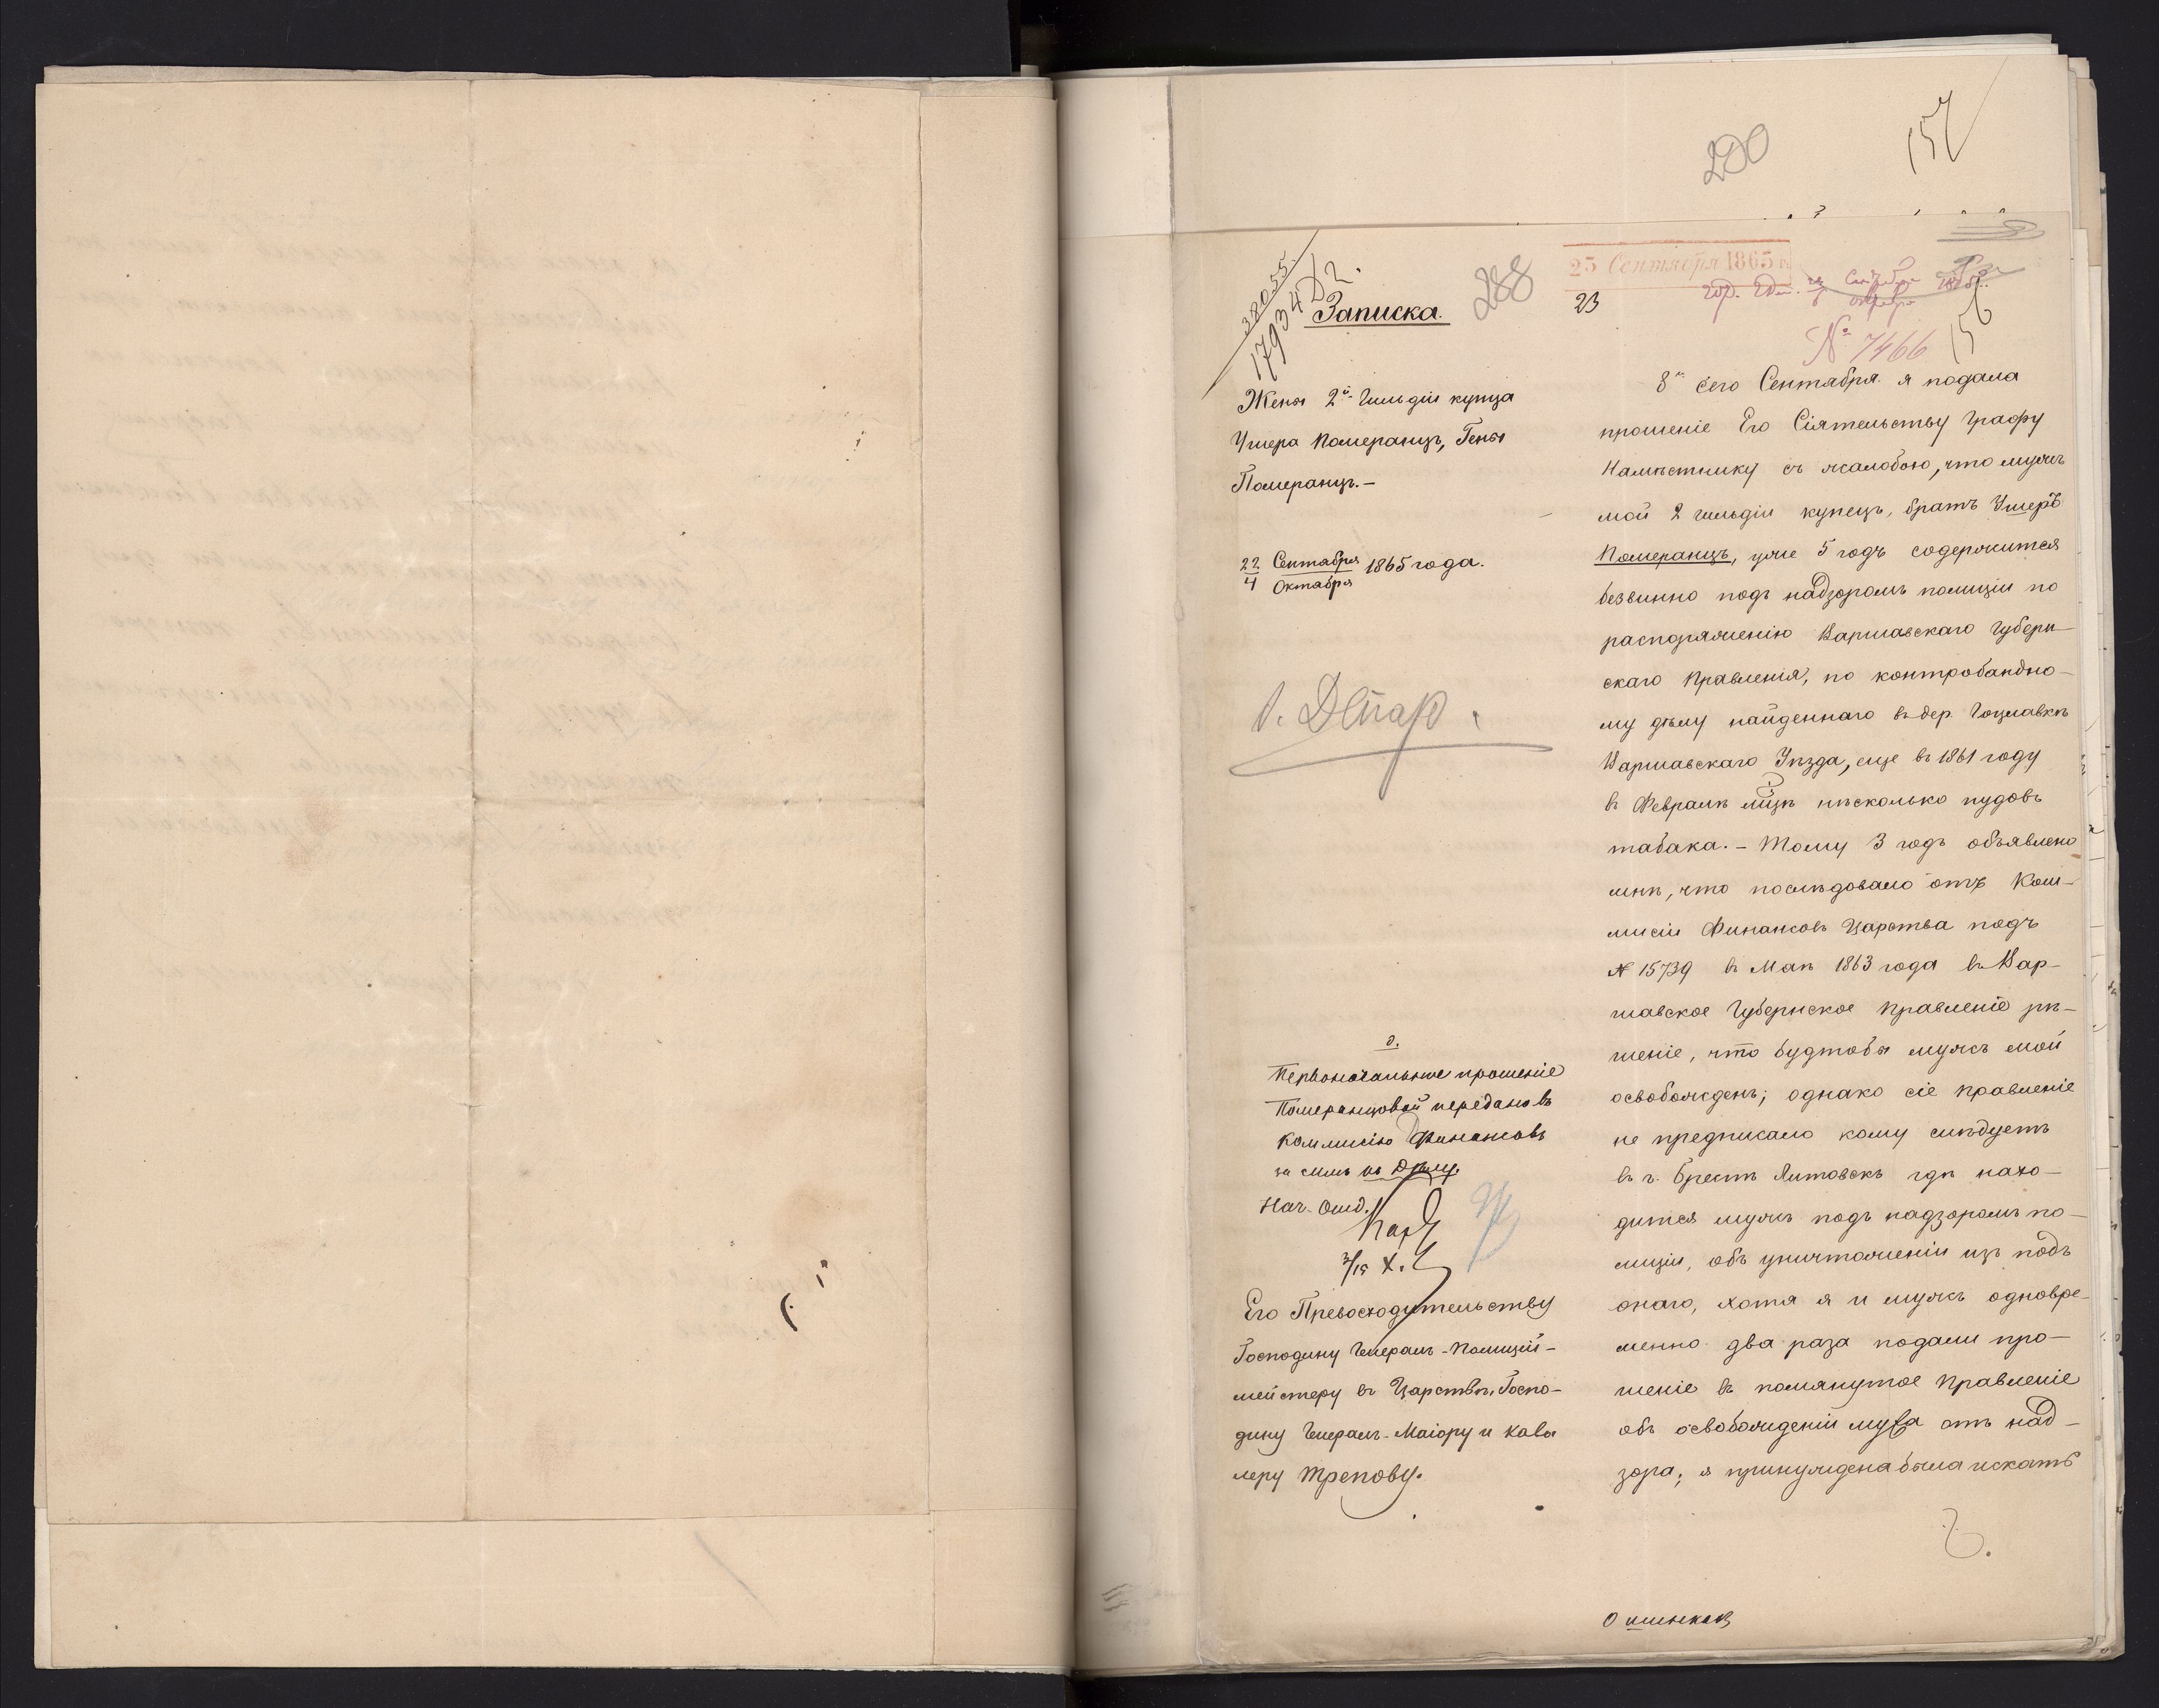 290
157
38055
17934
Записка.
288
25 Сентября 1865 г.
23
№ 7466
156
Жены 2й Гильдіи купца
Ушера Померанцъ, Гены
Померанцъ.—
22 Сентября 1865 года.
4 Октября
Первоначальное прошеніе
Померанцовой передано въ
Коммисію Финансовъ
за симъ къ Дѣлу.
Нач. Отд.
3/15 X.
Его Превосходительству
Господину Генералъ-Полицій-
мейстеру въ Царствѣ, Госпо-
дину Генералъ-Маіору и Кава
леру Трепову.
8го сего Сентября я подала
прошеніе Его Сіятельству Графу
Намѣстнику съ жалобою, что мужъ
мой 2 гильдіи купецъ, братъ Ушеръ
Померанцъ, уже 5 годъ содержится
безвинно подъ надзоромъ полиціи по
распоряженію Варшавскаго Губерн-
скаго Правленія, по контробандно-
му дѣлу найденнаго въ дер. Гоцлавкѣ
Варшавскаго Уѣзда, еще въ 1861 году
въ Февралѣ мцѣ нѣсколько пудовъ
табака.— Тому 3 годъ объявлено
мнѣ, что послѣдовало отъ Ком-
мисіи Финансовъ Царства подъ
№ 15739 въ Маѣ 1863 года въ Вар-
шавское Губернское Правленіе рѣ-
шеніе, что будтобы мужъ мой
освобожденъ; однако сіе Правленіе
не предписало кому слѣдуетъ
въ г. Брестъ Литовскъ гдѣ нахо-
дится мужъ подъ надзоромъ по-
лиціи, объ уничтоженіи изъ подъ
онаго, хотя я и мужъ одновре-
менно два раза подали про-
шеніе въ помянутое Правленіе
объ освобожденіи мужа отъ над-
зора; я принуждена была искать